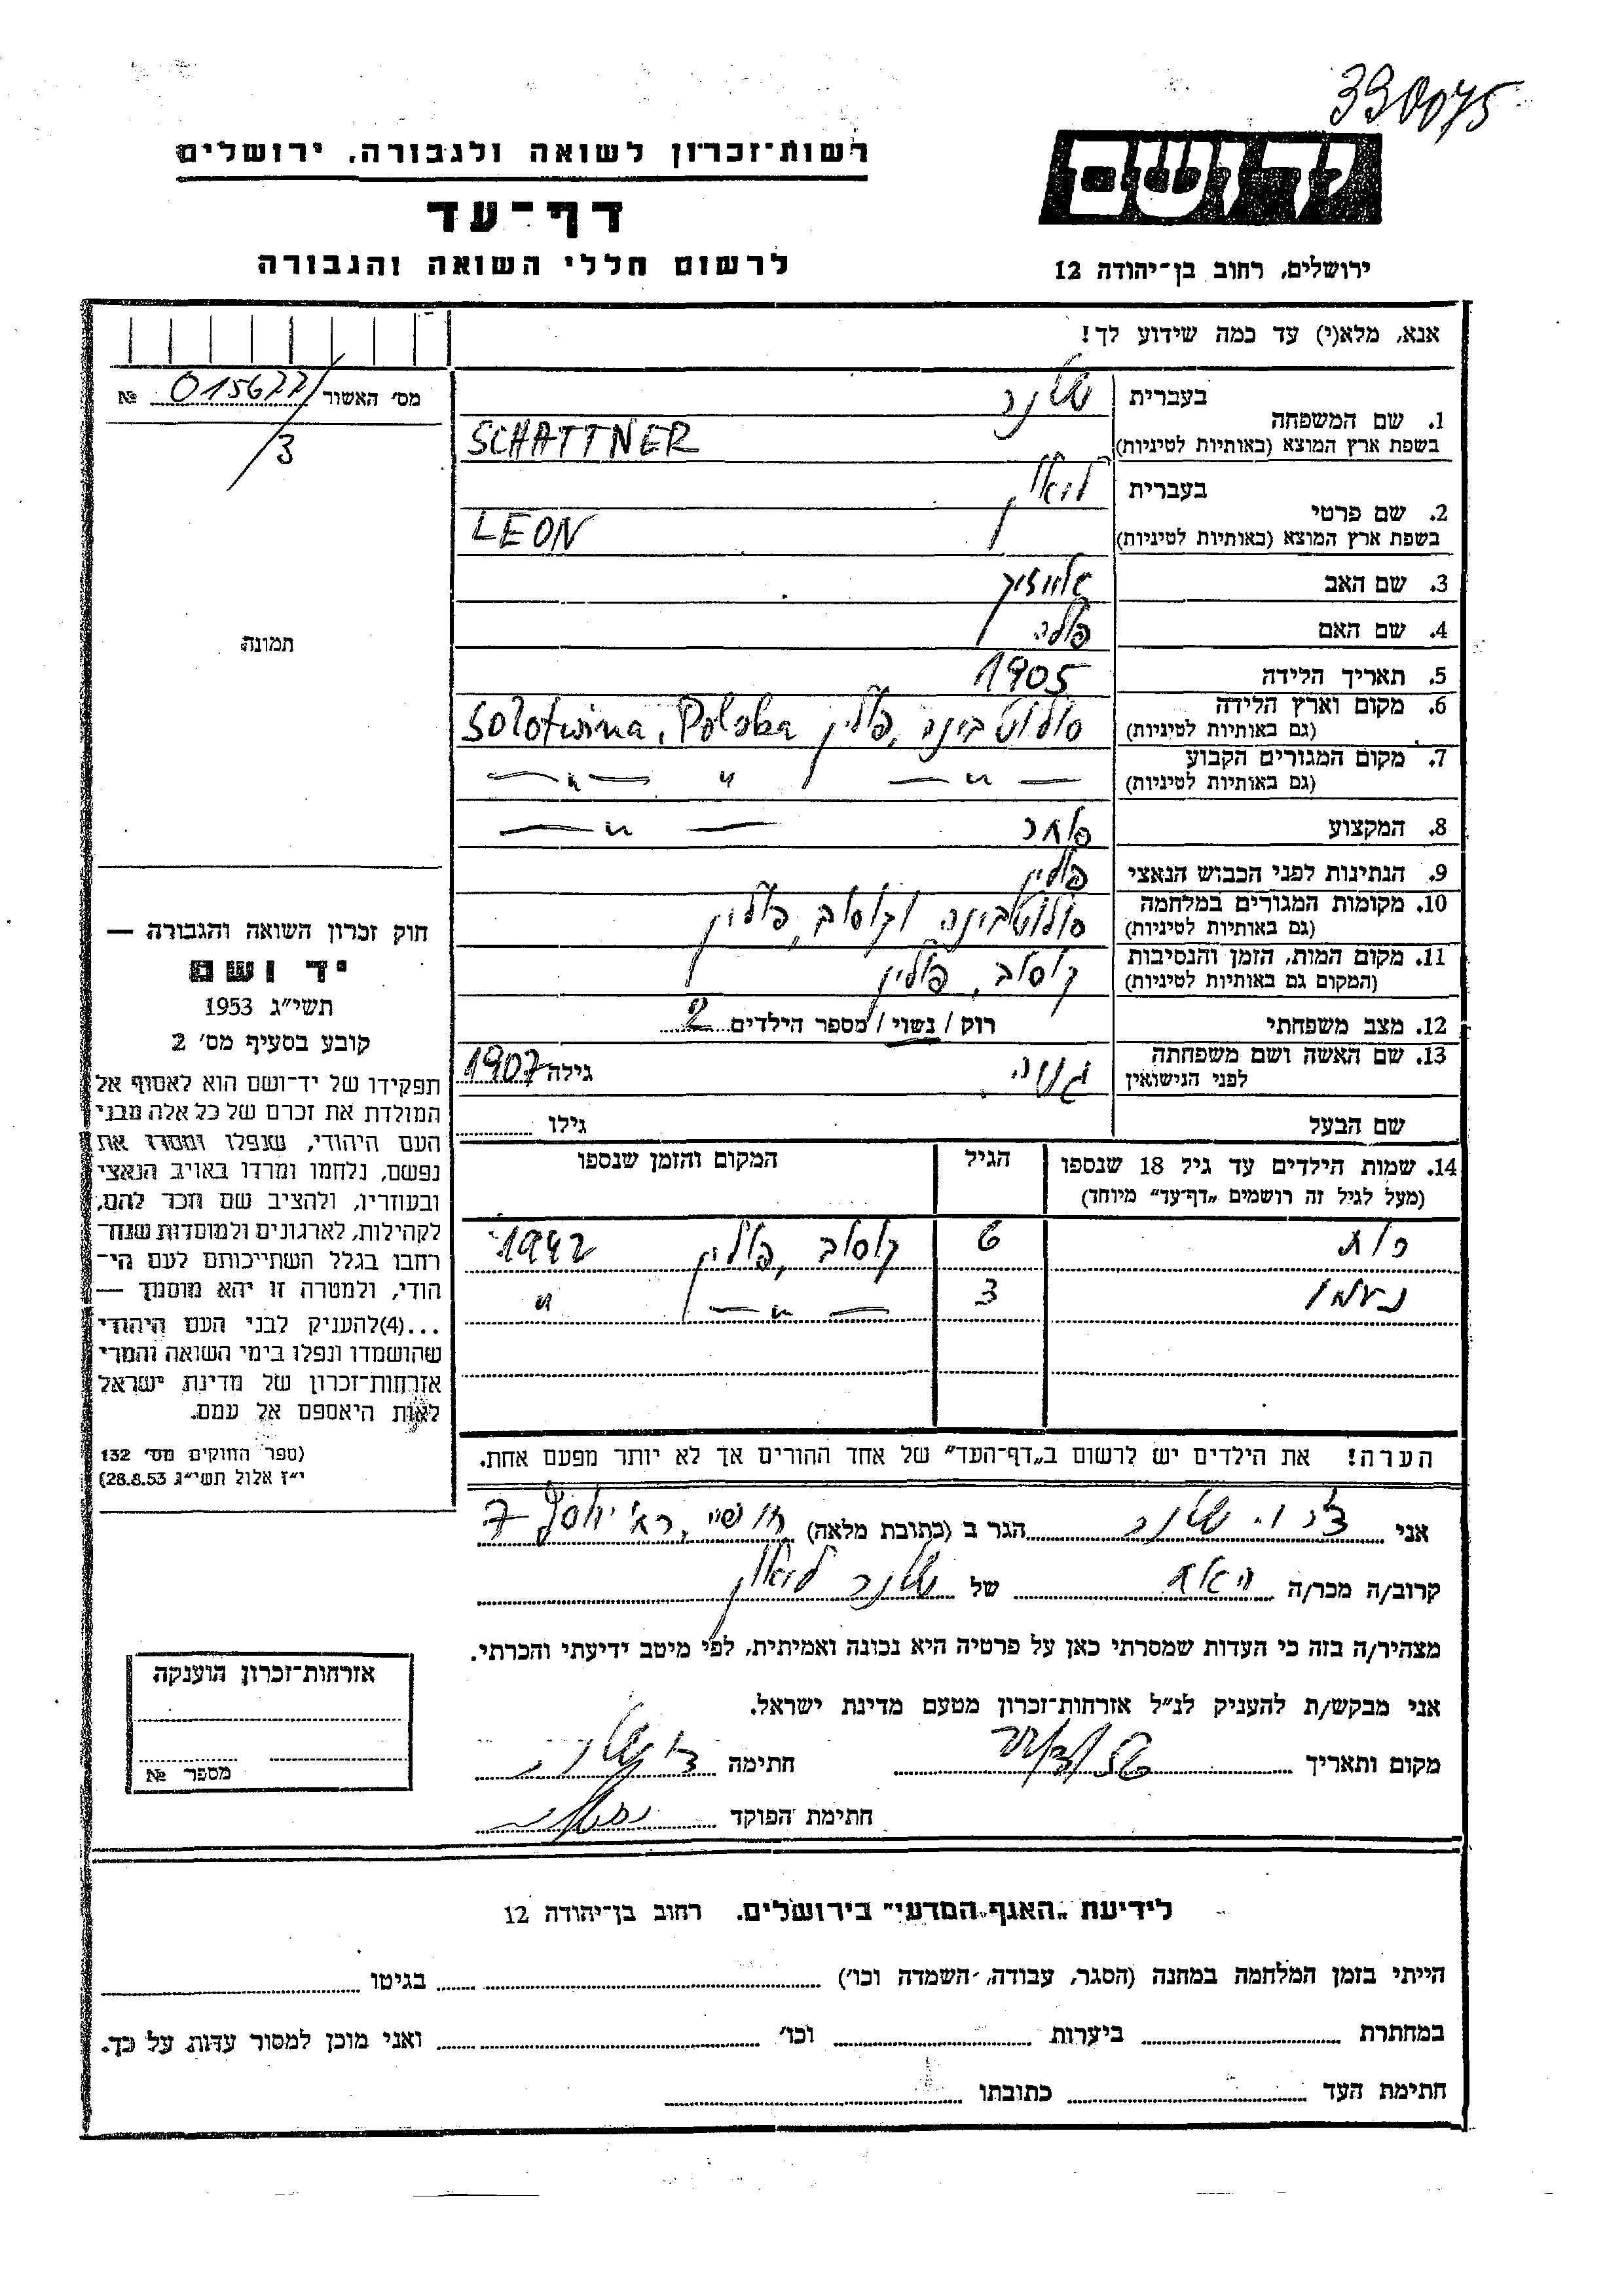 330075
רשות־זכרון לשואה ולגבורה. ירושלים
דף־עד
לרשום חללי השואה והגבורה
יד ושם
ירושלים, רחוב בן־יהודה 12
אנא, מלא(י) עד כמה שידוע לך!
מס׳ האשור 015622 №
/3
תמונה
1. שם המשפחה בעברית שטנר
בשפת ארץ המוצא (באותיות לטיניות) SCHATTNER
2. שם פרטי בעברית ליאון
בשפת ארץ המוצא (באותיות לטיניות) LEON
3. שם האב
4. שם האם
5. תאריך הלידה 1905
6. מקום וארץ הלידה סולוטבינה, פולין Solotwina, Polska
(גם באותיות לטיניות)
7. מקום המגורים הקבוע — " — " — " —
(גם באותיות לטיניות)
8. המקצוע סוחר — " —
9. הנתינות לפני הכבוש הנאצי פולין
10. מקומות המגורים במלחמה סולוטבינה וקוסוב, פולין
(גם באותיות לטיניות)
11. מקום המות, הזמן והנסיבות קוסוב, פולין
(המקום גם באותיות לטיניות)
12. מצב משפחתי רוק / נשוי / מספר הילדים 2
13. שם האשה ושם משפחתה גילה 1907
לפני הנישואין
שם הבעל גילו
14. שמות הילדים עד גיל 18 שנספו הגיל המקום והזמן שנספו
(מעל לגיל זה רושמים „דף־עד" מיוחד)
רות 6 קוסוב, פולין 1942
נעמי 3 — " — "
הערה! את הילדים יש לרשום ב„דף־העד" של אחד ההורים אך לא יותר מפעם אחת.
חוק זכרון השואה והגבורה —
יד ושם
תשי״ג 1953
קובע בסעיף מס׳ 2
תפקידו של יד־ושם הוא לאסוף אל
המולדת את זכרם של כל אלה מבני
העם היהודי, שנפלו ומסרו את
נפשם, נלחמו ומרדו באויב הנאצי
ובעוזריו, ולהציב שם וזכר להם,
לקהילות, לארגונים ולמוסדות שנח־
רבו בגלל השתייכותם לעם הי־
הודי, ולמטרה זו יהא מוסמך —
...(4)להעניק לבני העם היהודי
שהושמדו ונפלו בימי השואה והמרי
אזרחות־זכרון של מדינת ישראל
לאות היאספם אל עמם.
(ספר החוקים מס׳ 132
י״ז אלול תשי״ג 28.8.53)
אני שטנר הגר ב (כתובת מלאה) 7
קרוב/ה מכר/ה האח של שטנר ליאון
מצהיר/ה בזה כי העדות שמסרתי כאן על פרטיה היא נכונה ואמיתית, לפי מיטב ידיעתי והכרתי.
אני מבקש/ת להעניק לנ״ל אזרחות־זכרון מטעם מדינת ישראל.
מקום ותאריך חתימה
חתימת הפוקד
אזרחות־זכרון הוענקה
מספר №
לידיעת „האגף המדעי" בירושלים. רחוב בן־יהודה 12
הייתי בזמן המלחמה במחנה (הסגר, עבודה, השמדה וכו׳) בגיטו
במחתרת ביערות וכו׳ ואני מוכן למסור עדות על כך.
חתימת העד כתובתו